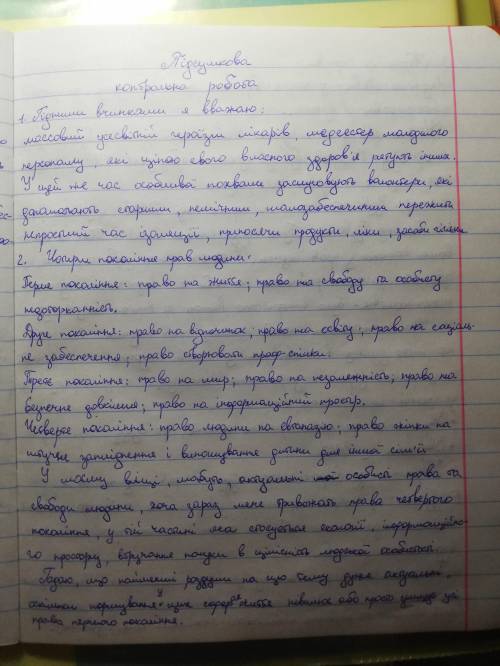 Підсумкова
контрольна робота
1. Гідними вчинками я вважаю:
массовий усесвітній героїзм лікарів, медсестер молодшого
персоналу, які ціною свого власного здоров'я рятують інших.
У цей же час особливої похвали заслуговують валонтери, які
допомагають старшим, немічним, малозабезпеченим пережить
непростий час ізоляції, приносячи продукти, ліки, засоби гігієни
2. Чотири покоління прав людини.
Перше покоління: право на життя; право на свободу та особисту
недоторканність.
Друге покоління: право на відпочинок; право на освіту; право на соціаль-
не забезпечення; право створювати проф-спілки.
Третє покоління: право на мир; право на незалежність; право на
безпечне довкілля; право на інформаційний простір.
Четверте покоління: право людини на евтаназію; право жінки на
штучне запліднення і виношування дитини для іншої сім'ї.
У моєму віці, мабуть, актуальні особисті права та
свободи людини, хоча зараз мене тривожать права четвертого
покоління, у тій частині яка стосується екології, інформаційно-
го простору, втручання в цілісність людської особистості.
Гадаю, що на цю тему дуже актуальні,
оскільки порушення у цих сферах життя або просто
права першого покоління.